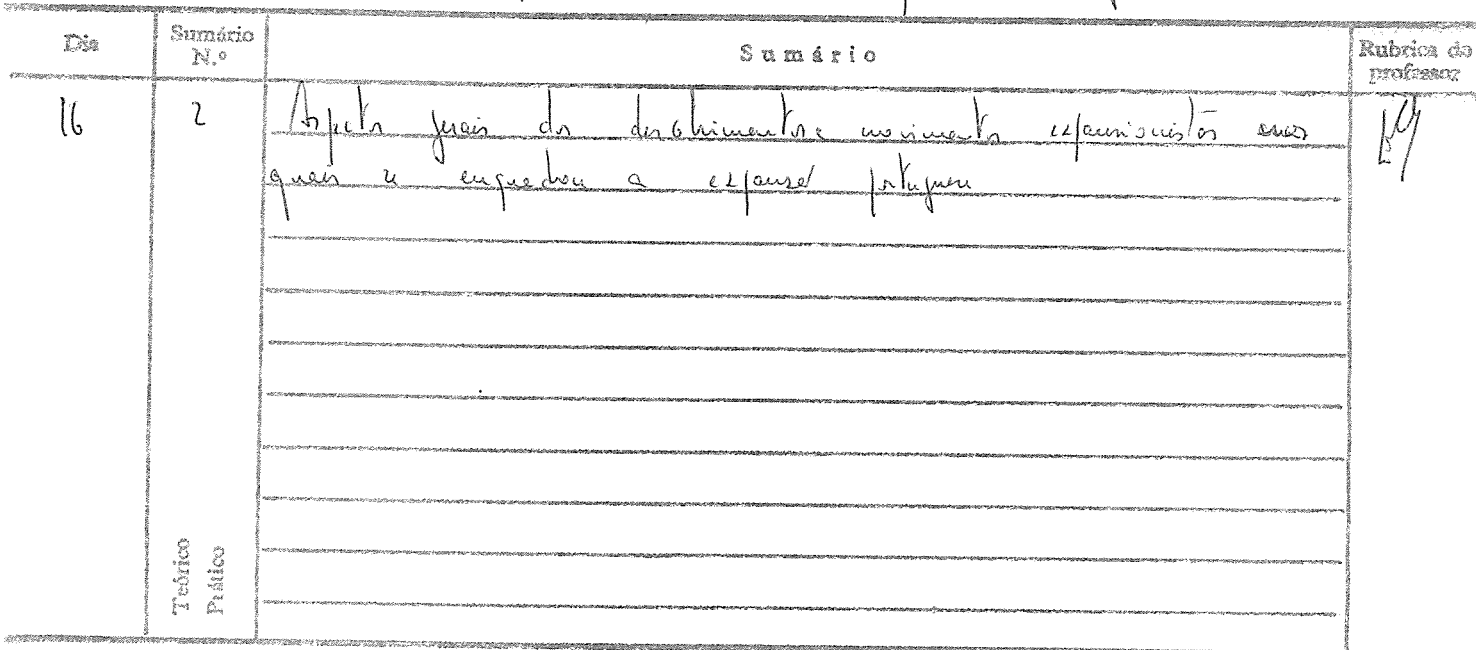 Dia Sumário N.º Sumário Rubrica do professor
16 2 Aspectos gerais dos descobrimentos e movimentos expansionistas nos
quais se enquadrou a expansão portuguesa
Teórico
Prático